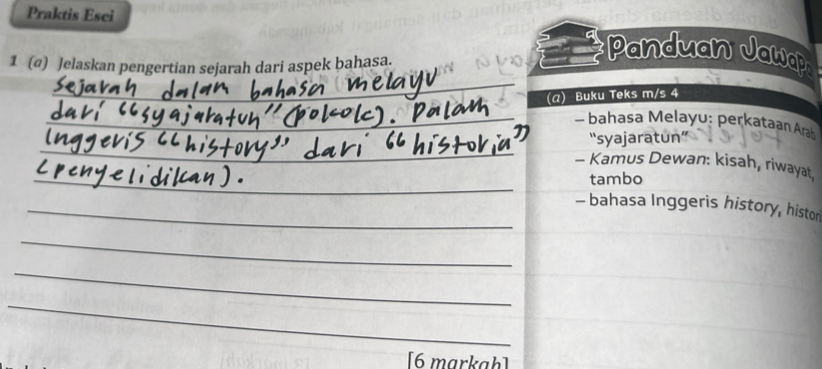 Praktis Esei
Panduan Jawapa
1 (a) Jelaskan pengertian sejarah dari aspek bahasa.
sejarah dalam bahasa melayu
dari "syajaratun" (pokok). Dalam
inggeris "history" dari "historia"
(penyelidikan).
(a) Buku Teks m/s 4
– bahasa Melayu: perkataan Arab
"syajaratun"
– Kamus Dewan: kisah, riwayat,
tambo
– bahasa Inggeris history, histori
[6 markah]